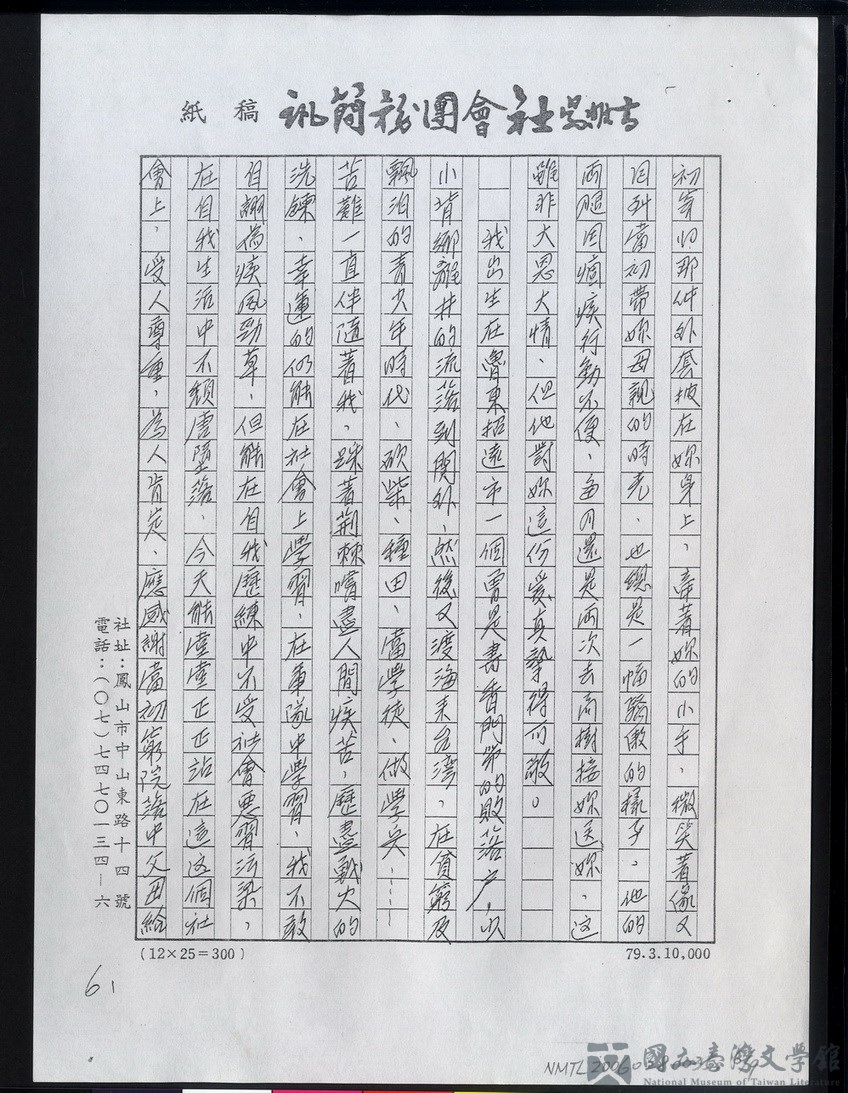 吳兆吉社會團務簡訊 稿紙
初寄归那件外套披在妳身上，牽著妳的小手，微笑著像又
回到當初帶妳母親的時光，也總是一幅驕傲的樣子。他的
両腿因痼疾行動不便，每月還是両次去高樹接妳送妳，这
雖非大恩大情，但他對妳這份爱真摯得可敬。
我出生在魯東招遠市一個曾是書香門第的敗落户，以
小背鄉離井的流落到関外，然後又渡海来台湾，在貧窮及
飄泊的青少年時代，砍柴、種田、當學徒、做學兵……
苦難一直伴隨著我，踩著荊棘嚐盡人間疾苦，歷盡戰火的
洗鍊，幸運的仍能在社會上學習，在軍隊中學習，我不敢
自詡為疾風勁草，但能在自我歷練中不受社會惡習污染，
在自我生活中不頹唐墮落，今天能堂堂正正站在這这個社
會上，受人尊重，為人肯定，應感謝當初窮院落中父母給
社址：鳳山市中山東路十四號
電話：（〇七）七四七〇一三四－六
(12×25＝300)
79.3.10,000
61
NMTL2006
國立臺灣文學館
National Museum of Taiwan Literature